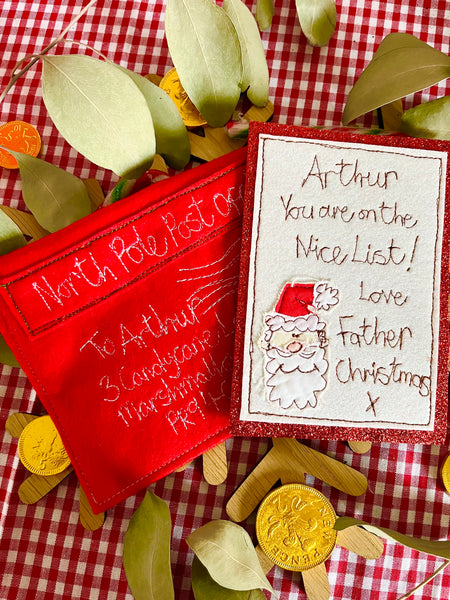 North Pole Post
To Arthur
3 Candycane
Arthur
You are on the
Nice List!
Love
Father
Christmas
X
PENCE